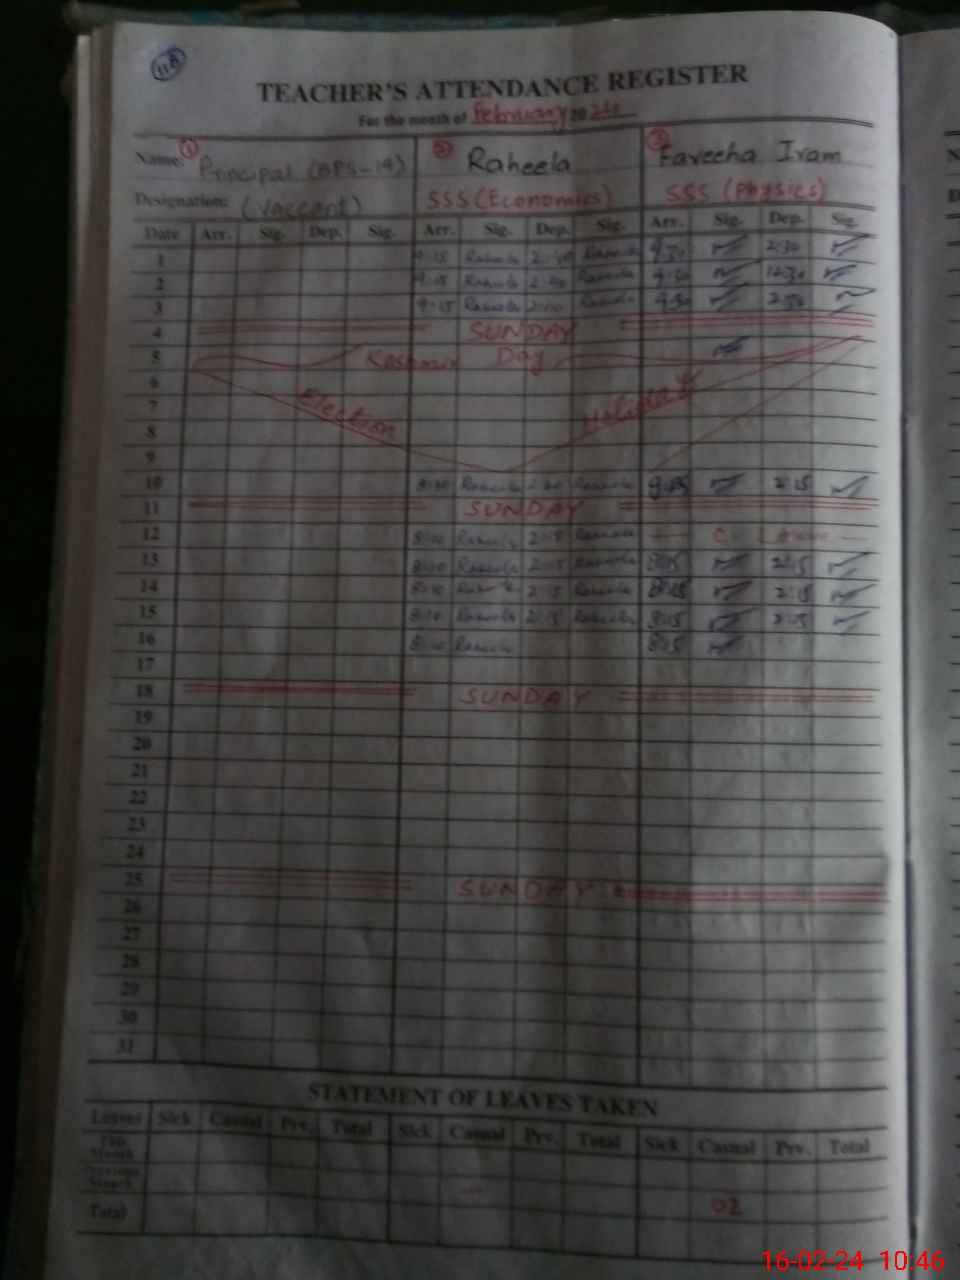 118
TEACHER'S ATTENDANCE REGISTER
For the month of February 20 24
Name: ① Principal (BPS-19) ② Raheela ③ Fareeha Iram
Designation: (Vaccant) SSS (Economics) SSS (Physics)
Date Arr. Sig. Dep. Sig. Arr. Sig. Dep. Sig. Arr. Sig. Dep. Sig.
1 9:15 Raheela Raheela 9:30 2:30
2 9:15 Raheela Raheela 9:30 12:30
3 9:15 Raheela Raheela 9:30 2:30
4 SUNDAY
5 Kashmir Day
6 Election Holidays
7
8
9
10 8:30 Raheela Raheela 2:15
11 SUNDAY
12 8:10 Raheela 2:15 Raheela C. Leave
13 8:10 Raheela 2:15 Raheela 8:15 2:15
14 8:10 Raheela 2:15 Raheela 8:15 2:15
15 8:10 Raheela 2:15 Raheela 8:15 2:15
16 8:10 Raheela 8:15
17
18 SUNDAY
19
20
21
22
23
24
25 SUNDAY
26
27
28
29
30
31
STATEMENT OF LEAVES TAKEN
Leaves Sick Casual Prv. Total Sick Casual Prv. Total Sick Casual Prv. Total
This Month
Previous Month
Total 02
16-02-24 10:46